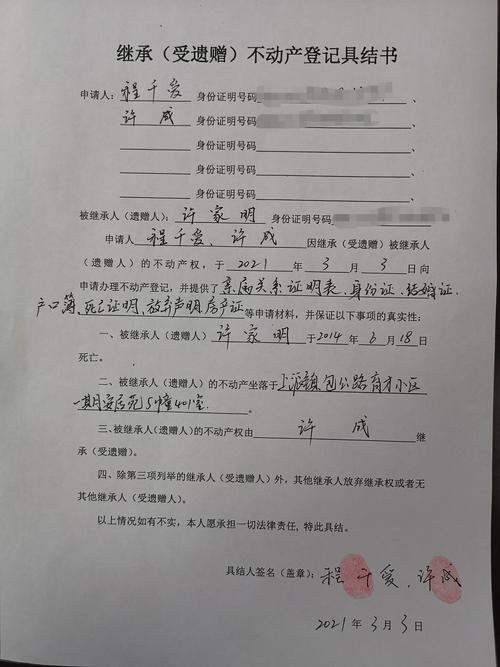 继承（受遗赠）不动产登记具结书
申请人： 程千爱 身份证明号码
许成 身份证明号码
身份证明号码
身份证明号码
身份证明号码
被继承人（遗赠人）： 许家明 身份证明号码
申请人 程千爱、许成 因继承（受遗赠）被继承人
（遗赠人）的不动产权，于 2021 年 3 月 3 日向
申请办理不动产登记，并提供了 亲属关系证明表、身份证、结婚证、
户口簿、死亡证明、放弃声明、房产证 等申请材料，并保证以下事项的真实性：
一、被继承人（遗赠人） 许家明 于 2014 年 6 月 18 日
死亡。
二、被继承人（遗赠人）的不动产坐落于 上派镇包公路育才小区
一期月安居苑5幢401室
三、被继承人（遗赠人）的不动产权由 许成 继
承（受遗赠）。
四、除第三项列举的继承人（受遗赠人）外，其他继承人放弃继承权或者无
其他继承人（受遗赠人）。
以上情况如有不实，本人愿承担一切法律责任，特此具结。
具结人签名（盖章）： 程千爱、许成
2021 年 3 月 3 日